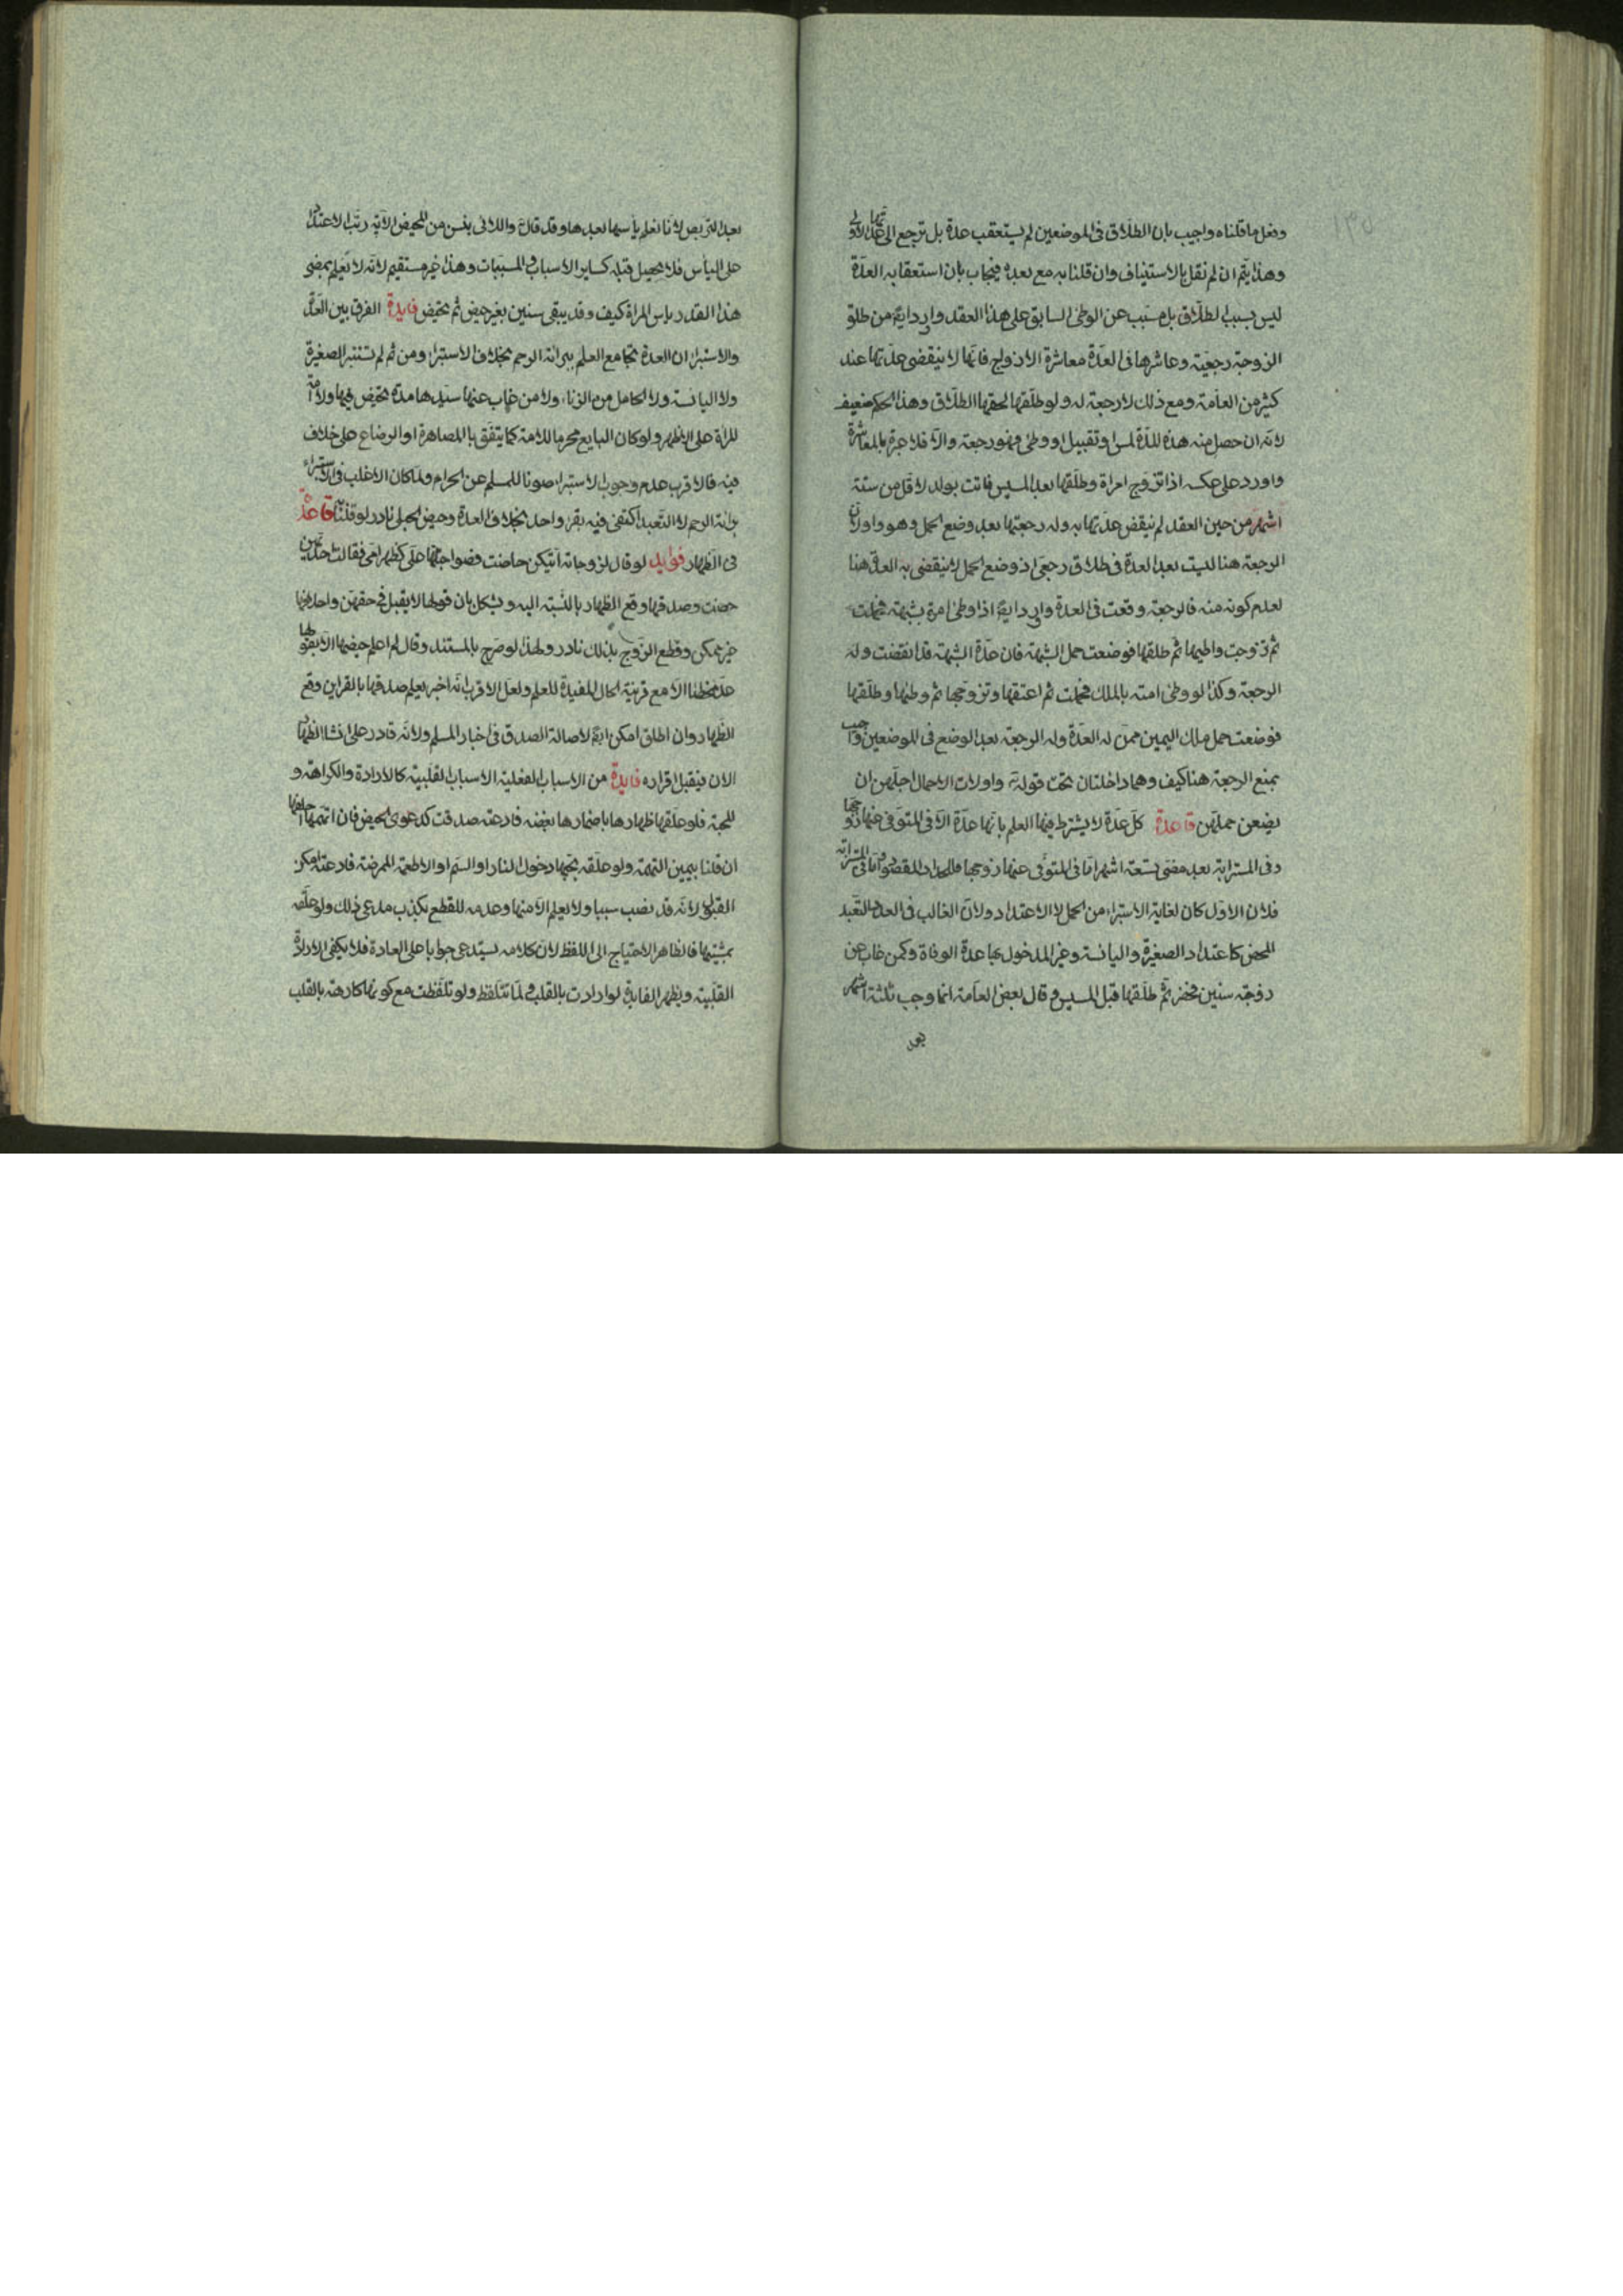 وفعل ما قلناه واجيب بان الطلاق فى الموضعين لم يستعقب عدة بل ترجع الى عدتها الاولى
وهذا يتم ان لم نقل بالاستيناف وان قلنا به مع بعده فيجاب بان استعقابه العدة
ليس بسبب الطلاق بل مسبب عن الوطئ السابق على هذا العقد واورد ايضا من طلق
الزوجة رجعية وعاشرها فى العدة معاشرة الازواج فانها لا ينقضى عدتها عند
كثير من العامة ومع ذلك لا رجعة له ولو طلقها لحقها الطلاق وهذا الحكم ضعيف
لانه ان حصل منه هذه اللذة لمس او تقبيل او وطئ فهو رجعة والا فلا عبرة بالمعاشرة
واورد على عكسه اذا تزوج امراة وطلقها بعد المسيس فاتت بولد لاقل من ستة
اشهر من حين العقد لم ينقض عدتها به وله رجعتها بعد وضع الحمل وهو وارد لان
الرجعة هنا ليست بعد العدة فى طلاق رجعى اذ وضع الحمل لا ينقضى به العدة هنا
لعدم كونه منه فالرجعة وقعت فى العدة واورد ايضا اذا وطئ امة بشبهة فحملت
ثم تزوجت واطيها ثم طلقها فوضعت حمل الشبهة فان عدة الشبهة قد انقضت وله
الرجعة وكذا لو وطئ امته بالملك فحملت ثم اعتقها وتزوجها ثم وطئها وطلقها
فوضعت حمل ملك اليمين ممن له العدة وله الرجعة بعد الوضع فى الموضعين واجيب
بمنع الرجعة هنا كيف وهما داخلتان تحت قوله تع واولات الاحمال اجلهن ان
يضعن حملهن قاعدة كل عدة لا يشترط فيها العلم بانها عدة الا فى المتوفى عنها زوجها
وفى المسترابة بعد مضى تسعة اشهر اما فى المتوفى عنها زوجها فللحداد المقصود واما فى المسترابة
فلان الاول كان لغاية الاستبراء من الحمل لا الاعتداد ولان الغالب فى العدد التعبد
المحض كاعتداد الصغيرة واليائسة وغير المدخول بها عدة الوفاة وكمن غاب عن
زوجة سنين فحضر ثم طلقها قبل المسيس وقال بعض العامة انما وجب ثلثة اشهر
بعد
بعد التربص لانا نعلم يأسها بعدها وقد قال تع واللائى يئسن من المحيض الاية رتب الاعتداد
على اليأس فلا يحصل قبله كساير الاسباب والمسببات وهذا غير مستقيم لانه لا نعلم بمضى
هذا القدر ياس المراة كيف وقد يبقى سنين بغير حيض ثم تحيض فايدة الفرق بين العدة
والاستبرا ان العدة تجامع العلم ببرائة الرحم بخلاف الاستبرا ومن ثم لم تستبر الصغيرة
ولا اليائسة ولا الحامل من الزنا ولا من غاب عنها سيدها مدة تحيض فيها ولا امة
المراة على الاظهر ولو كان البايع محرما للامة كما يتفق بالمصاهرة او الرضاع على خلاف
فيه فالاقرب عدم وجوب الاستبراء صونا للمسلم عن الحرام ولما كان الاغلب فى الاستبراء
برائة الرحم لا التعبد اكتفى فيه بقرء واحد بخلاف العدة وحيض الحبلى نادر لو قلنا به قاعدة
فى الظهار فوايد لو قال لزوجاته ايتكن حاضت فصواحبتها على كظهر امى فقالت احديهن
حضت وصدقها وقع الظهار بالنسبة اليه ويشكل بان قولها لا يقبل فى حقهن واحلافها
غير ممكن وقطع الزوج بذلك نادر ولهذا لو صرح بالمستند وقال لم اعلم حيضها الا بقولها
الا مع قرينة الحال المفيدة للعلم ولعل الاقرب انه اخبر بعلم صدقها بالقراين وقع
الظهار وان اطلق امكن ايضا لاصالة الصدق فى اخبار المسلم ولانه قادر على انشا الظهار
الان فيقبل اقراره فايدة من الاسباب الفعلية الاسباب القلبية كالارادة والكراهة و
المحبة فلو علقها ظهارها باضمارها بغضه فادعته صدقت كدعوى الحيض فان اتهمها احلفها
ان قلنا بيمين التهمة ولو علقه بحبها دخول النار او السم او الاطعمة الممرضة فادعته امكن
القبول لانه قد نصب سببا ولا يعلم الا منها وعدمه للقطع بكذب مدعى ذلك ولو علقه
بمشيتها فالظاهر الاحتياج الى اللفظ لان كلامه يستدعى جوابا على العادة فلا يكفى الارادة
القلبية ويظهر الفايدة لو ارادت بالقلب ولما تتلفظ ولو تلفظت مع كونها كارهة بالقلب